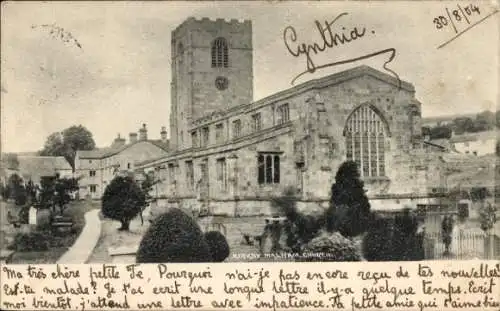 Cynthia
30/8/04
KIRKBY MALHAM CHURCH.
Ma très chère petite Tet, Pourquoi n'ai-je pas encore reçu de tes nouvelles?
Est-tu malade? Je t'ai ecrit une longue lettre il-y-a quelque temps. Ecrit
moi bientôt, j'attend une lettre avec impatience. Ma petite amie qui t'aime bien